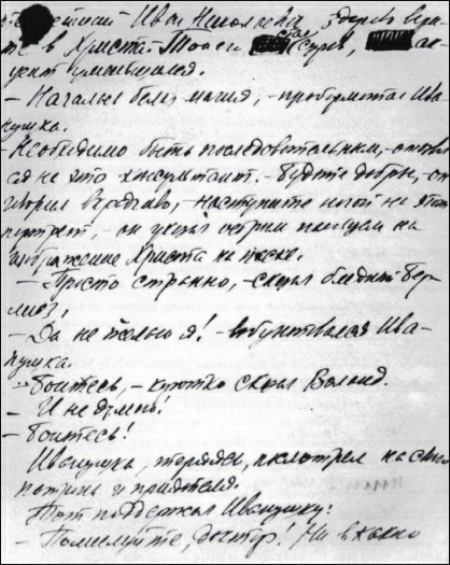 Иван Николаевич, здорово вери-
те в Христа. – Тон его стал суров, ак-
цент уменьшился.
– Началась белая магия, – пробормотал Ива-
нушка.
– Необходимо быть последовательным, – отозвал-
ся на это консультант. – Будьте добры, – он
говорил вкрадчиво, – наступите ногой на этот
портрет, – он указал острым пальцем на
изображение Христа на песке.
– Просто странно, – сказал бледный Бер-
лиоз.
– Да не желаю я! – взбунтовался Ива-
нушка.
– Боитесь, – коротко сказал Воланд.
– И не думаю!
– Боитесь!
Иванушка, теряясь, посмотрел на своего
патрона и приятеля.
Тот поддержал Иванушку:
– Помилуйте, доктор! Ни в какого